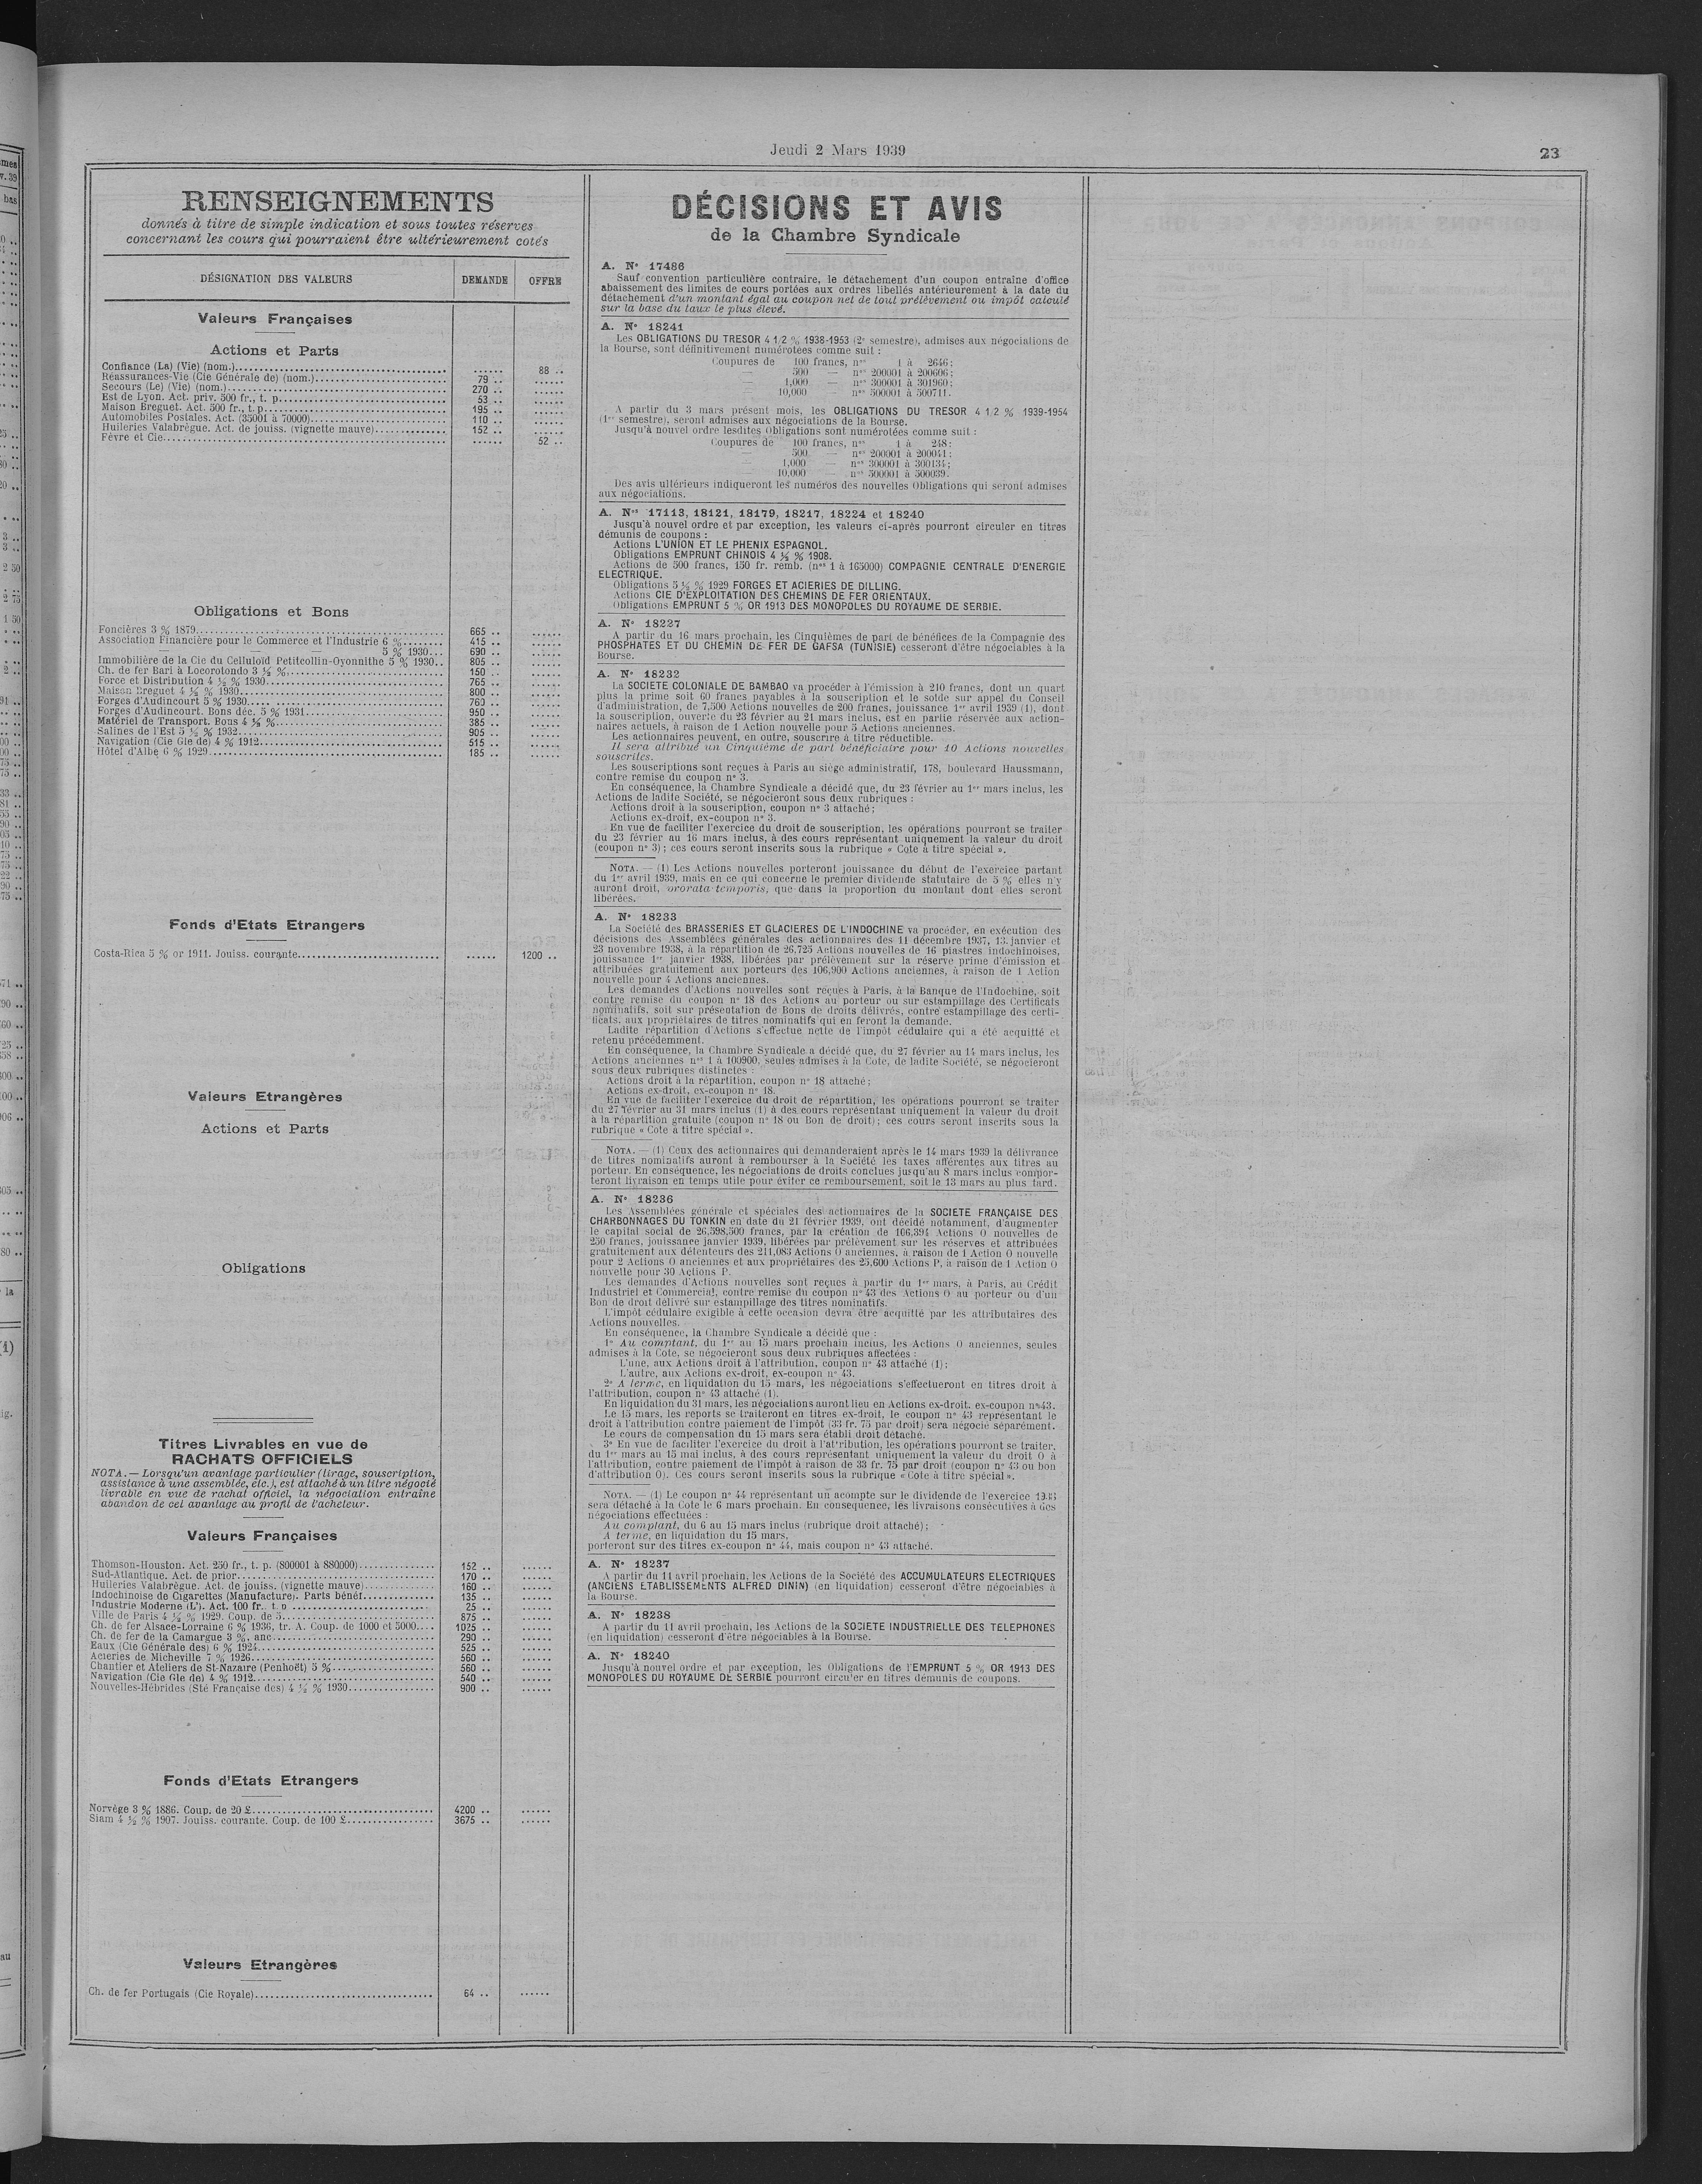 Jeudi 2 Mars 1939
23
RENSEIGNEMENTS
donnés à titre de simple indication et sous toutes réserves
concernant les cours qui pourraient être ultérieurement cotés
DÉSIGNATION DES VALEURS DEMANDE OFFRE
Valeurs Françaises
Actions et Parts
Confiance (La) (Vie) (nom.) ...... 88 ..
Réassurances-Vie (Cie Générale de) (nom.) 79 .. ......
Secours (Le) (Vie) (nom.) 270 .. ......
Est de Lyon. Act. priv. 500 fr., t. p. 53 .. ......
Maison Breguet. Act. 500 fr., t. p. 195 .. ......
Automobiles Postales. Act. (35001 à 70000) 110 .. ......
Huileries Valabrègue. Act. de jouiss. (vignette mauve) 152 .. ......
Fèvre et Cie ...... 52 ..
Obligations et Bons
Foncières 3 % 1879 665 .. ......
Association Financière pour le Commerce et l'Industrie 6 % 415 .. ......
— — — 5 % 1930 690 .. ......
Immobilière de la Cie du Celluloïd Petitcollin-Oyonnithe 5 % 1930 805 .. ......
Ch. de fer Bari à Locorotondo 3 ½ % 150 .. ......
Force et Distribution 4 ½ % 1930 765 .. ......
Maison Breguet 4 ½ % 1930 800 .. ......
Forges d'Audincourt 5 % 1930 760 .. ......
Forges d'Audincourt. Bons déc. 5 % 1931 950 .. ......
Matériel de Transport. Bons 4 ½ % 385 .. ......
Salines de l'Est 5 ½ % 1932 905 .. ......
Navigation (Cie Gle de) 4 % 1912 515 .. ......
Hôtel d'Albe 6 % 1929 185 .. ......
Fonds d'Etats Etrangers
Costa-Rica 5 % or 1911. Jouiss. courante ...... 1200 ..
Valeurs Etrangères
Actions et Parts
Obligations
Titres Livrables en vue de
RACHATS OFFICIELS
NOTA. — Lorsqu'un avantage particulier (tirage, souscription,
assistance à une assemblée, etc.), est attaché à un titre négocié
livrable en vue de rachat officiel, la négociation entraîne
abandon de cet avantage au profit de l'acheteur.
Valeurs Françaises
Thomson-Houston. Act. 250 fr., t. p. (800001 à 880000) 152 .. ......
Sud-Atlantique. Act. de prior. 170 .. ......
Huileries Valabrègue. Act. de jouiss. (vignette mauve) 160 .. ......
Indochinoise de Cigarettes (Manufacture). Parts bénéf. 135 .. ......
Industrie Moderne (L'). Act. 100 fr., t. p. 25 .. ......
Ville de Paris 4 ½ % 1929. Coup. de 5 875 .. ......
Ch. de fer Alsace-Lorraine 6 % 1936, tr. A. Coup. de 1000 et 5000 1025 .. ......
Ch. de fer de la Camargue 3 %, anc. 290 .. ......
Eaux (Cie Générale des) 6 % 1924 525 .. ......
Aciéries de Micheville 7 % 1926 560 .. ......
Chantier et Ateliers de St-Nazaire (Penhoët) 5 % 560 .. ......
Navigation (Cie Gle de) 4 % 1912 540 .. ......
Nouvelles-Hébrides (Sté Française des) 4 ½ % 1930 900 .. ......
Fonds d'Etats Etrangers
Norvège 3 % 1886. Coup. de 20 £ 4200 .. ......
Siam 4 ½ % 1907. Jouiss. courante. Coup. de 100 £ 3675 .. ......
Valeurs Etrangères
Ch. de fer Portugais (Cie Royale) 64 .. ......
DÉCISIONS ET AVIS
de la Chambre Syndicale
A. N° 17486
Sauf convention particulière contraire, le détachement d'un coupon entraîne d'office
abaissement des limites de cours portées aux ordres libellés antérieurement à la date du
détachement d'un montant égal au coupon net de tout prélèvement ou impôt calculé
sur la base du taux le plus élevé.
A. N° 18241
Les OBLIGATIONS DU TRESOR 4 1/2 % 1938-1953 (2e semestre), admises aux négociations de
la Bourse, sont définitivement numérotées comme suit :
Coupures de 100 francs, nos 1 à 2646;
— 500 — nos 200001 à 200606;
— 1,000 — nos 300001 à 301960;
— 10,000 — nos 500001 à 500711.
A partir du 3 mars présent mois, les OBLIGATIONS DU TRESOR 4 1/2 % 1939-1954
(1er semestre), seront admises aux négociations de la Bourse.
Jusqu'à nouvel ordre lesdites Obligations sont numérotées comme suit :
Coupures de 100 francs, nos 1 à 248;
— 500 — nos 200001 à 200041;
— 1,000 — nos 300001 à 300134;
— 10,000 — nos 500001 à 500039.
Des avis ultérieurs indiqueront les numéros des nouvelles Obligations qui seront admises
aux négociations.
A. Nos 17113, 18121, 18179, 18217, 18224 et 18240
Jusqu'à nouvel ordre et par exception, les valeurs ci-après pourront circuler en titres
démunis de coupons :
Actions L'UNION ET LE PHENIX ESPAGNOL.
Obligations EMPRUNT CHINOIS 4 ½ % 1908.
Actions de 500 francs, 150 fr. remb. (nos 1 à 165000) COMPAGNIE CENTRALE D'ENERGIE
ELECTRIQUE.
Obligations 5 ½ % 1929 FORGES ET ACIERIES DE DILLING.
Actions CIE D'EXPLOITATION DES CHEMINS DE FER ORIENTAUX.
Obligations EMPRUNT 5 % OR 1913 DES MONOPOLES DU ROYAUME DE SERBIE.
A. N° 18227
A partir du 16 mars prochain, les Cinquièmes de part de bénéfices de la Compagnie des
PHOSPHATES ET DU CHEMIN DE FER DE GAFSA (TUNISIE) cesseront d'être négociables à la
Bourse.
A. N° 18232
La SOCIETE COLONIALE DE BAMBAO va procéder à l'émission à 210 francs, dont un quart
plus la prime soit 60 francs payables à la souscription et le solde sur appel du Conseil
d'administration, de 7,500 Actions nouvelles de 200 francs, jouissance 1er avril 1939 (1), dont
la souscription, ouverte du 23 février au 21 mars inclus, est en partie réservée aux action-
naires actuels, à raison de 1 Action nouvelle pour 5 Actions anciennes.
Les actionnaires peuvent, en outre, souscrire à titre réductible.
Il sera attribué un Cinquième de part bénéficiaire pour 10 Actions nouvelles
souscrites.
Les souscriptions sont reçues à Paris au siège administratif, 178, boulevard Haussmann,
contre remise du coupon n° 3.
En conséquence, la Chambre Syndicale a décidé que, du 23 février au 1er mars inclus, les
Actions de ladite Société, se négocieront sous deux rubriques :
Actions droit à la souscription, coupon n° 3 attaché;
Actions ex-droit, ex-coupon n° 3.
En vue de faciliter l'exercice du droit de souscription, les opérations pourront se traiter
du 23 février au 16 mars inclus, à des cours représentant uniquement la valeur du droit
(coupon n° 3) ; ces cours seront inscrits sous la rubrique « Cote à titre spécial ».
NOTA. — (1) Les Actions nouvelles porteront jouissance du début de l'exercice partant
du 1er avril 1939, mais en ce qui concerne le premier dividende statutaire de 5 % elles n'y
auront droit, prorata temporis, que dans la proportion du montant dont elles seront
libérées.
A. N° 18233
La Société des BRASSERIES ET GLACIERES DE L'INDOCHINE va procéder, en exécution des
décisions des Assemblées générales des actionnaires des 11 décembre 1937, 13 janvier et
23 novembre 1938, à la répartition de 26,725 Actions nouvelles de 16 piastres indochinoises,
jouissance 1er janvier 1938, libérées par prélèvement sur la réserve prime d'émission et
attribuées gratuitement aux porteurs des 106,900 Actions anciennes, à raison de 1 Action
nouvelle pour 4 Actions anciennes.
Les demandes d'Actions nouvelles sont reçues à Paris, à la Banque de l'Indochine, soit
contre remise du coupon n° 18 des Actions au porteur ou sur estampillage des Certificats
nominatifs, soit sur présentation de Bons de droits délivrés, contre estampillage des certi-
ficats, aux propriétaires de titres nominatifs qui en feront la demande.
Ladite répartition d'Actions s'effectue nette de l'impôt cédulaire qui a été acquitté et
retenu précédemment.
En conséquence, la Chambre Syndicale a décidé que, du 27 février au 14 mars inclus, les
Actions anciennes nos 1 à 100900, seules admises à la Cote, de ladite Société, se négocieront
sous deux rubriques distinctes :
Actions droit à la répartition, coupon n° 18 attaché;
Actions ex-droit, ex-coupon n° 18.
En vue de faciliter l'exercice du droit de répartition, les opérations pourront se traiter
du 27 février au 31 mars inclus (1) à des cours représentant uniquement la valeur du droit
à la répartition gratuite (coupon n° 18 ou Bon de droit) ; ces cours seront inscrits sous la
rubrique « Cote à titre spécial ».
NOTA. — (1) Ceux des actionnaires qui demanderaient après le 14 mars 1939 la délivrance
de titres nominatifs auront à rembourser à la Société les taxes afférentes aux titres au
porteur. En conséquence, les négociations de droits conclues jusqu'au 8 mars inclus compor-
teront livraison en temps utile pour éviter ce remboursement, soit le 13 mars au plus tard.
A. N° 18236
Les Assemblées générale et spéciales des actionnaires de la SOCIETE FRANÇAISE DES
CHARBONNAGES DU TONKIN en date du 21 février 1939, ont décidé notamment, d'augmenter
le capital social de 26,598,500 francs, par la création de 106,394 Actions O nouvelles de
250 francs, jouissance janvier 1939, libérées par prélèvement sur les réserves et attribuées
gratuitement aux détenteurs des 211,083 Actions O anciennes, à raison de 1 Action O nouvelle
pour 2 Actions O anciennes et aux propriétaires des 25,600 Actions P, à raison de 1 Action O
nouvelle pour 30 Actions P.
Les demandes d'Actions nouvelles sont reçues à partir du 1er mars, à Paris, au Crédit
Industriel et Commercial, contre remise du coupon n° 43 des Actions O au porteur ou d'un
Bon de droit délivré sur estampillage des titres nominatifs.
L'impôt cédulaire exigible à cette occasion devra être acquitté par les attributaires des
Actions nouvelles.
En conséquence, la Chambre Syndicale a décidé que :
1° Au comptant, du 1er au 15 mars prochain inclus, les Actions O anciennes, seules
admises à la Cote, se négocieront sous deux rubriques affectées :
L'une, aux Actions droit à l'attribution, coupon n° 43 attaché (1);
L'autre, aux Actions ex-droit, ex-coupon n° 43.
2° A terme, en liquidation du 15 mars, les négociations s'effectueront en titres droit à
l'attribution, coupon n° 43 attaché (1).
En liquidation du 31 mars, les négociations auront lieu en Actions ex-droit, ex-coupon n° 43.
Le 15 mars, les reports se traiteront en titres ex-droit, le coupon n° 43 représentant le
droit à l'attribution contre paiement de l'impôt (33 fr. 75 par droit) sera négocié séparément.
Le cours de compensation du 15 mars sera établi droit détaché.
3° En vue de faciliter l'exercice du droit à l'attribution, les opérations pourront se traiter,
du 1er mars au 15 mai inclus, à des cours représentant uniquement la valeur du droit O à
l'attribution, contre paiement de l'impôt à raison de 33 fr. 75 par droit (coupon n° 43 ou bon
d'attribution O). Ces cours seront inscrits sous la rubrique « Cote à titre spécial ».
NOTA. — (1) Le coupon n° 44 représentant un acompte sur le dividende de l'exercice
sera détaché à la Cote le 6 mars prochain. En conséquence, les livraisons consécutives à des
négociations effectuées :
Au comptant, du 6 au 15 mars inclus (rubrique droit attaché);
A terme, en liquidation du 15 mars,
porteront sur des titres ex-coupon n° 44, mais coupon n° 43 attaché.
A. N° 18237
A partir du 11 avril prochain, les Actions de la Société des ACCUMULATEURS ELECTRIQUES
(ANCIENS ETABLISSEMENTS ALFRED DININ) (en liquidation) cesseront d'être négociables à
la Bourse.
A. N° 18238
A partir du 11 avril prochain, les Actions de la SOCIETE INDUSTRIELLE DES TELEPHONES
(en liquidation) cesseront d'être négociables à la Bourse.
A. N° 18240
Jusqu'à nouvel ordre et par exception, les Obligations de l'EMPRUNT 5 % OR 1913 DES
MONOPOLES DU ROYAUME DE SERBIE pourront circuler en titres démunis de coupons.